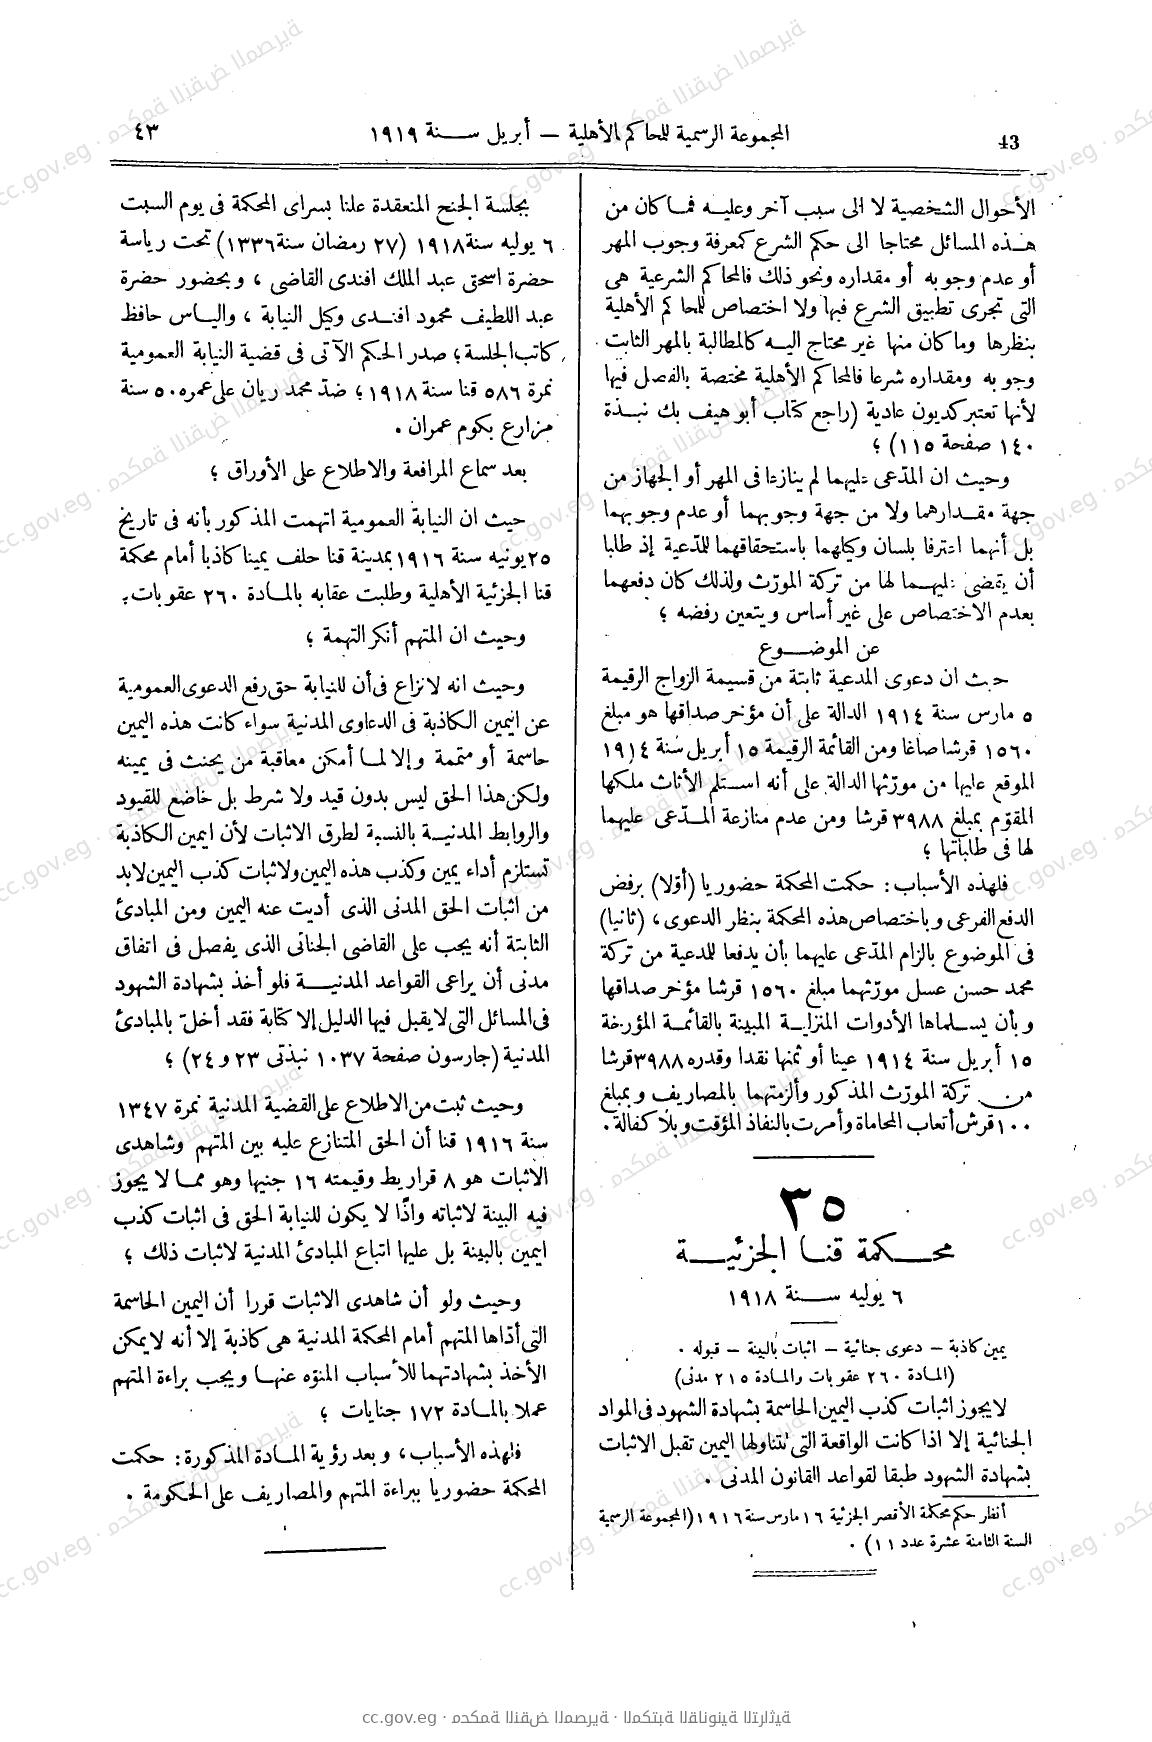 43
المجموعة الرسمية للمحاكم الأهلية — أبريل سنة ١٩١٩
٤٣
الأحوال الشخصية لا الى سبب آخر وعليه فما كان من
هذه المسائل محتاجا الى حكم الشرع كمعرفة وجوب المهر
أو عدم وجوبه أو مقداره ونحو ذلك فالمحاكم الشرعية هى
التى تجرى تطبيق الشرع فيها ولا اختصاص للمحاكم الأهلية
بنظرها وما كان منها غير محتاج اليه كالمطالبة بالمهر الثابت
وجوبه ومقداره شرعا فالمحاكم الأهلية مختصة بالفصل فيها
لأنها تعتبر كديون عادية (راجع كتاب أبو هيف بك نبذة
١٤٠ صفحة ١١٥) ؛
وحيث ان المدّعى عليهما لم ينازعا فى المهر أو الجهاز من
جهة مقدارهما ولا من جهة وجوبهما أو عدم وجوبهما
بل أنهما اعترفا بلسان وكيلهما باستحقاقهما للمدّعية إذ طلبا
أن يقضى عليهما لها من تركة المورّث ولذلك كان دفعهما
بعدم الاختصاص على غير أساس ويتعين رفضه ؛
عن الموضوع
حيث ان دعوى المدعية ثابتة من قسيمة الزواج الرقيمة
٥ مارس سنة ١٩١٤ الدالة على أن مؤخر صداقها هو مبلغ
١٥٦٠ قرشا صاغا ومن القائمة الرقيمة ١٥ أبريل سنة ١٩١٤
الموقع عليها من مورّثها الدالة على أنه استلم الأثاث ملكها
المقوّم بمبلغ ٣٩٨٨ قرشا ومن عدم منازعة المدّعى عليهما
لها فى طلباتها ؛
فلهذه الأسباب : حكمت المحكمة حضوريا (أوّلا) برفض
الدفع الفرعى وباختصاص هذه المحكمة بنظر الدعوى ، (ثانيا)
فى الموضوع بالزام المدّعى عليهما بأن يدفعا للمدعية من تركة
محمد حسن عسل مورّثهما مبلغ ١٥٦٠ قرشا مؤخر صداقها
وبأن يسلماها الأدوات المنزلية المبينة بالقائمة المؤرخة
١٥ أبريل سنة ١٩١٤ عينا أو ثمنها نقدا وقدره ٣٩٨٨ قرشا
من تركة المورّث المذكور وألزمتهما بالمصاريف وبمبلغ
١٠٠ قرش أتعاب المحاماة وأمرت بالنفاذ المؤقت وبلا كفالة .
٣٥
محكمة قنا الجزئية
٦ يوليه سنة ١٩١٨
يمين كاذبة — دعوى جنائية — اثبات بالبينة — قبوله .
(المادة ٢٦٠ عقوبات والمادة ٢١٥ مدنى)
لا يجوز اثبات كذب اليمين الحاسمة بشهادة الشهود فى المواد
الجنائية إلا اذا كانت الواقعة التى تتناولها اليمين تقبل الاثبات
بشهادة الشهود طبقا لقواعد القانون المدنى .
أنظر حكم محكمة الأقصر الجزئية ١٦ مارس سنة ١٩١٦ (المجموعة الرسمية
السنة الثامنة عشرة عدد ١١) .
بجلسة الجنح المنعقدة علنا بسراى المحكمة فى يوم السبت
٦ يوليه سنة ١٩١٨ (٢٧ رمضان سنة ١٣٣٦) تحت رياسة
حضرة اسحق عبد الملك افندى القاضى ، وبحضور حضرة
عبد اللطيف محمود افندى وكيل النيابة ، والياس حافظ
كاتب الجلسة ؛ صدر الحكم الآتى فى قضية النيابة العمومية
نمرة ٥٨٦ قنا سنة ١٩١٨ ؛ ضدّ محمد ريان على عمره ٥٠ سنة
مزارع بكوم عمران .
بعد سماع المرافعة والاطلاع على الأوراق ؛
حيث ان النيابة العمومية اتهمت المذكور بأنه فى تاريخ
٢٥ يونيه سنة ١٩١٦ بمدينة قنا حلف يمينا كاذبا أمام محكمة
قنا الجزئية الأهلية وطلبت عقابه بالمادة ٢٦٠ عقوبات .
وحيث ان المتهم أنكر التهمة ؛
وحيث انه لا نزاع فى أن للنيابة حق رفع الدعوى العمومية
عن اليمين الكاذبة فى الدعاوى المدنية سواء كانت هذه اليمين
حاسمة أو متممة وإلا لما أمكن معاقبة من يحنث فى يمينه
ولكن هذا الحق ليس بدون قيد ولا شرط بل خاضع للقيود
والروابط المدنية بالنسبة لطرق الاثبات لأن ايمين الكاذبة
تستلزم أداء يمين وكذب هذه اليمين ولاثبات كذب اليمين لابد
من اثبات الحق المدنى الذى أديت عنه اليمين ومن المبادئ
الثابتة أنه يجب على القاضى الجنائى الذى يفصل فى اتفاق
مدنى أن يراعى القواعد المدنية فلو أخذ بشهادة الشهود
فى المسائل التى لا يقبل فيها الدليل إلا كتابة فقد أخلّ بالمبادئ
المدنية (جارسون صفحة ١٠٣٧ نبذتى ٢٣ و ٢٤) ؛
وحيث ثبت من الاطلاع على القضية المدنية نمرة ١٣٤٧
سنة ١٩١٦ قنا أن الحق المتنازع عليه بين المتهم وشاهدى
الاثبات هو ٨ قراريط وقيمته ١٦ جنيها وهو مما لا يجوز
فيه البينة لاثباته واذًا لا يكون للنيابة الحق فى اثبات كذب
ايمين بالبينة بل عليها اتباع المبادئ المدنية لاثبات ذلك ؛
وحيث ولو أن شاهدى الاثبات قررا أن اليمين الحاسمة
التى أدّاها المتهم أمام المحكمة المدنية هى كاذبة إلا أنه لا يمكن
الأخذ بشهادتهما للأسباب المنوّه عنها ويجب براءة المتهم
عملا بالمادة ١٧٢ جنايات ؛
فلهذه الأسباب ، وبعد رؤية المادة المذكورة : حكمت
المحكمة حضوريا ببراءة المتهم والمصاريف على الحكومة .
cc.gov.eg · محكمة النقض المصرية · المكتبة القانونية التراثية